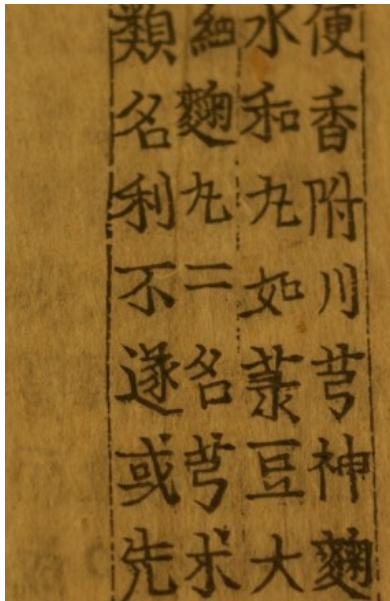 便香附川芎神麴
水和丸如菉豆大
麴丸二名芎朮
類名利不遂或先